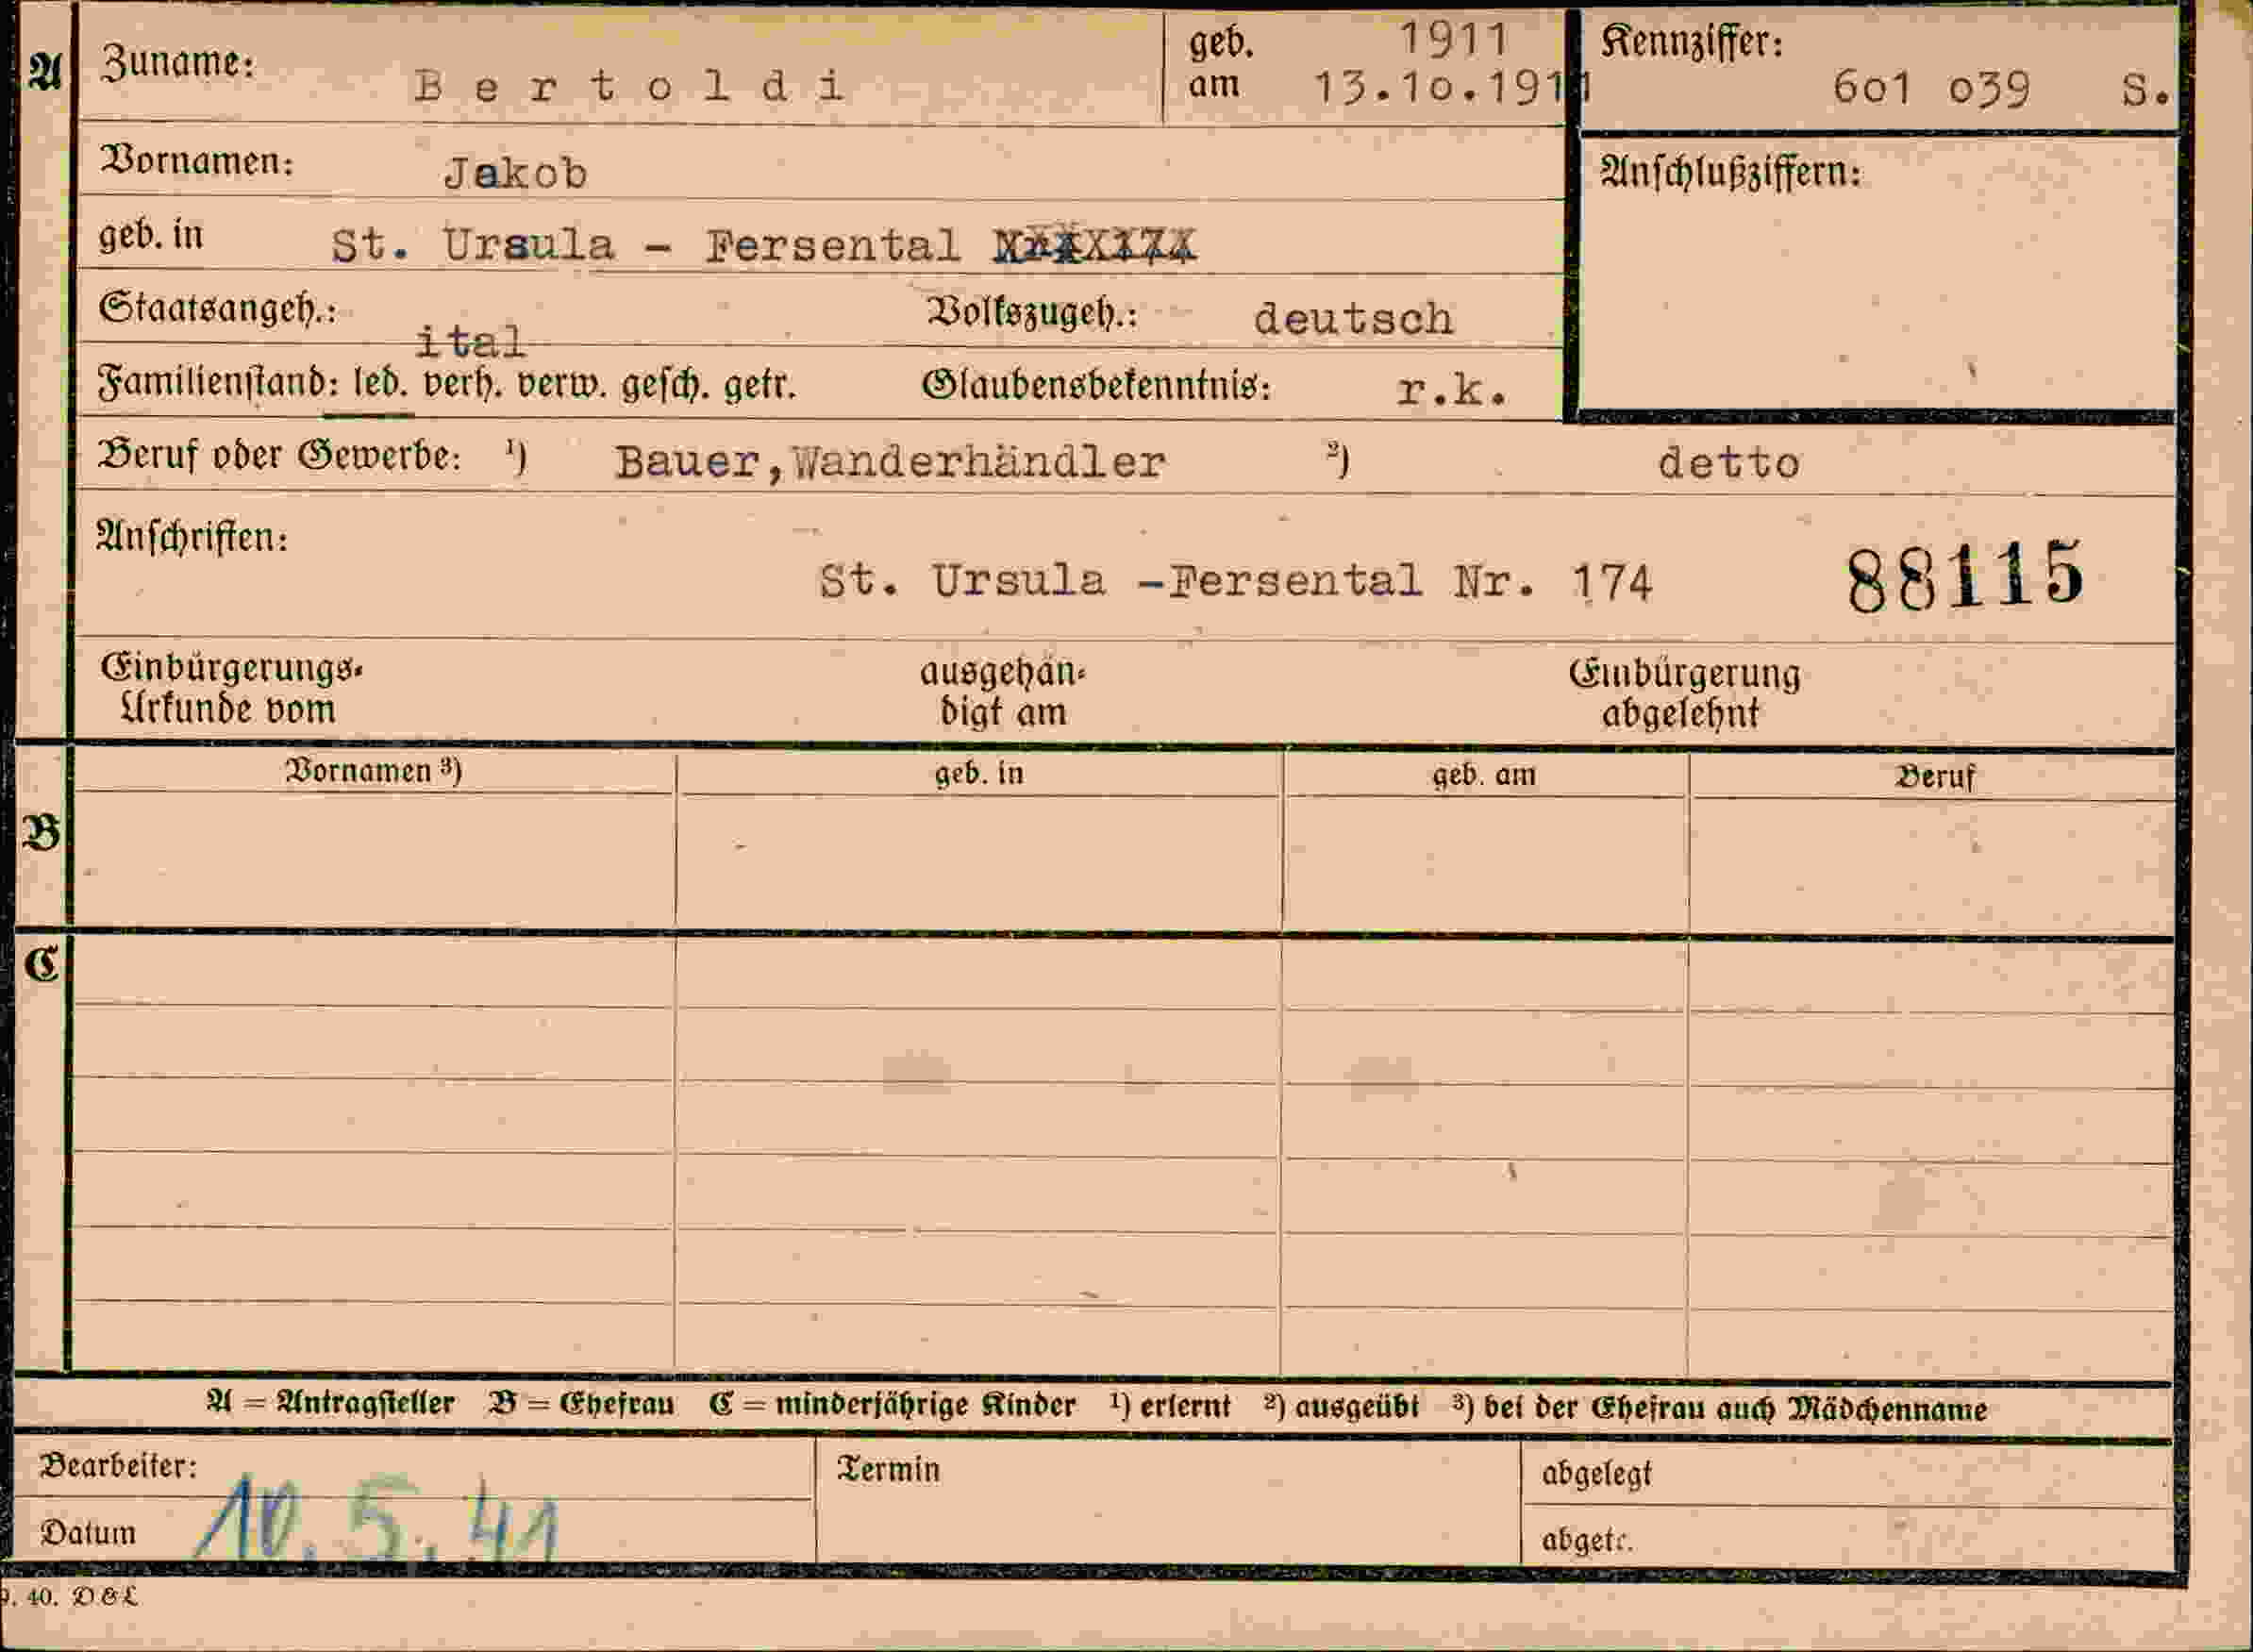 A Zuname: Bertoldi geb. am 1911 13.10.1911 Kennziffer: 601 039 S.
Vornamen: Jakob Anschlußziffern:
geb. in St. Ursula - Fersental
Staatsangeh.: ital Volkszugeh.: deutsch
Familienstand: led. verh. verw. gesch. getr. Glaubensbekenntnis: r.k.
Beruf oder Gewerbe: ¹) Bauer,Wanderhändler ²) detto
Anschriften:
St. Ursula -Fersental Nr. 174 88115
Einbürgerungs- ausgehän- Einbürgerung
Urkunde vom digt am abgelehnt
Vornamen ³) geb. in geb. am Beruf
B
C
A = Antragsteller B = Ehefrau C = minderjährige Kinder ¹) erlernt ²) ausgeübt ³) bei der Ehefrau auch Mädchenname
Bearbeiter: Termin abgelegt
Datum 10.5.41 abgetr.
9. 40. D & L